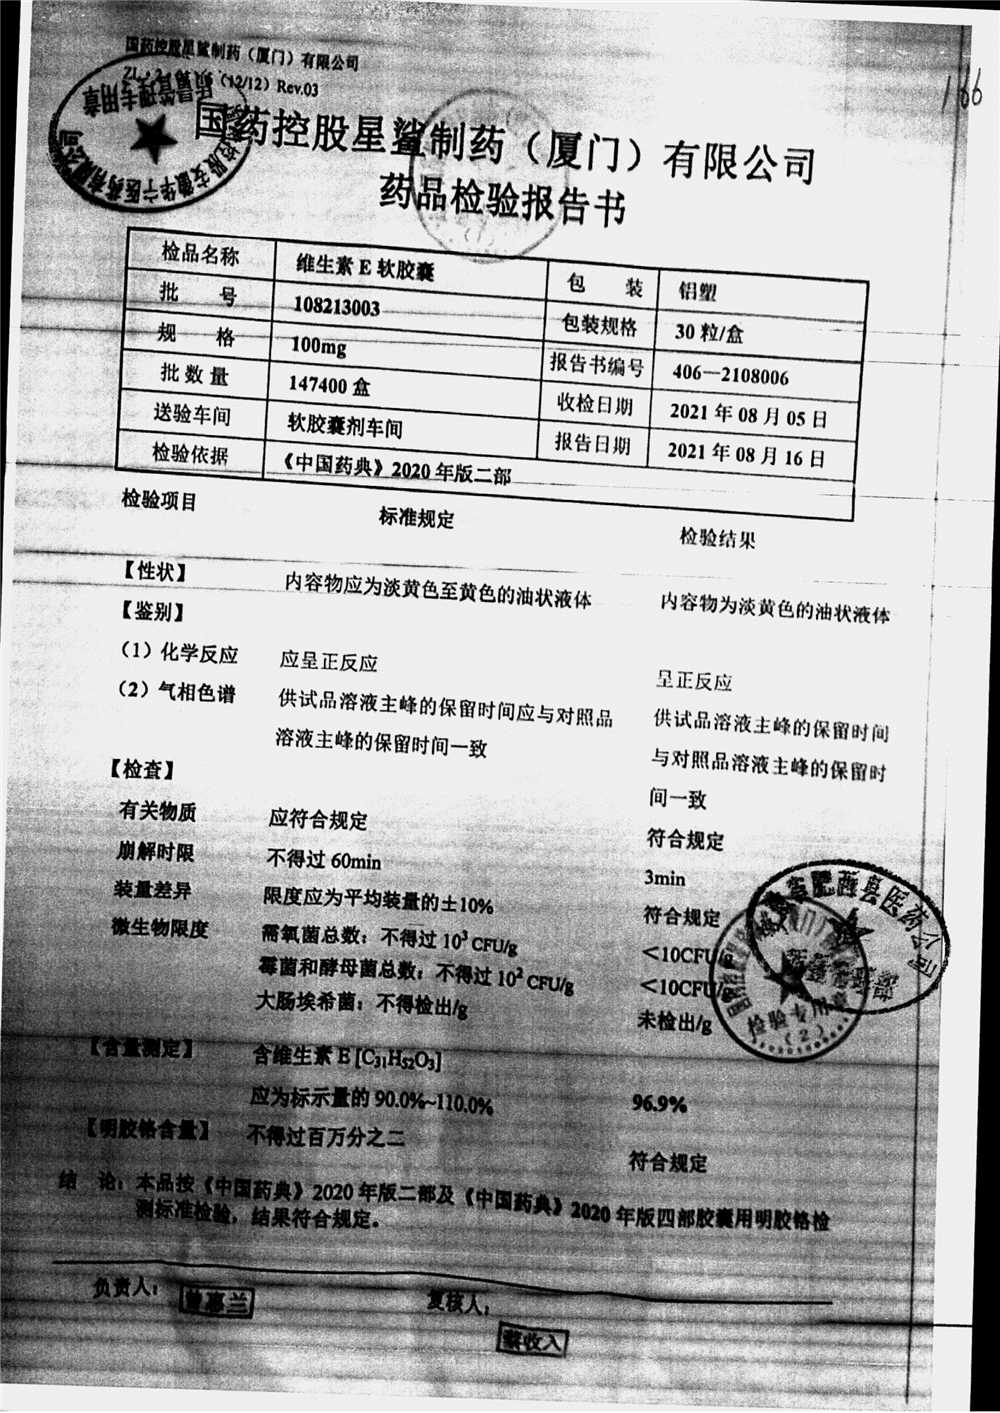 国药控股星鲨制药（厦门）有限公司
（12/12）Rev.03
166
国药控股星鲨制药（厦门）有限公司
药品检验报告书
质量管理专用章
检品名称 维生素 E 软胶囊 包 装 铝塑
批 号 108213003 包装规格 30 粒/盒
规 格 100mg 报告书编号 406—2108006
批数量 147400 盒 收检日期 2021 年 08 月 05 日
送验车间 软胶囊剂车间 报告日期 2021 年 08 月 16 日
检验依据 《中国药典》2020 年版二部
检验项目 标准规定 检验结果
【性状】 内容物应为淡黄色至黄色的油状液体 内容物为淡黄色的油状液体
【鉴别】
（1）化学反应 应呈正反应 呈正反应
（2）气相色谱 供试品溶液主峰的保留时间应与对照品 供试品溶液主峰的保留时间
溶液主峰的保留时间一致 与对照品溶液主峰的保留时
间一致
【检查】
有关物质 应符合规定 符合规定
崩解时限 不得过 60min 3min
装量差异 限度应为平均装量的±10% 符合规定
微生物限度 需氧菌总数：不得过 10³ CFU/g <10CFU/g
霉菌和酵母菌总数：不得过 10² CFU/g <10CFU/g
大肠埃希菌：不得检出/g 未检出/g
肥西县医药公司
检验专用章
（2）
【含量测定】 含维生素 E [C31H52O3]
应为标示量的 90.0%~110.0% 96.9%
【明胶铬含量】 不得过百万分之二 符合规定
结 论：本品按《中国药典》2020 年版二部及《中国药典》2020 年版四部胶囊用明胶铬检
测标准检验，结果符合规定。
负责人： 复核人：
蔡收入